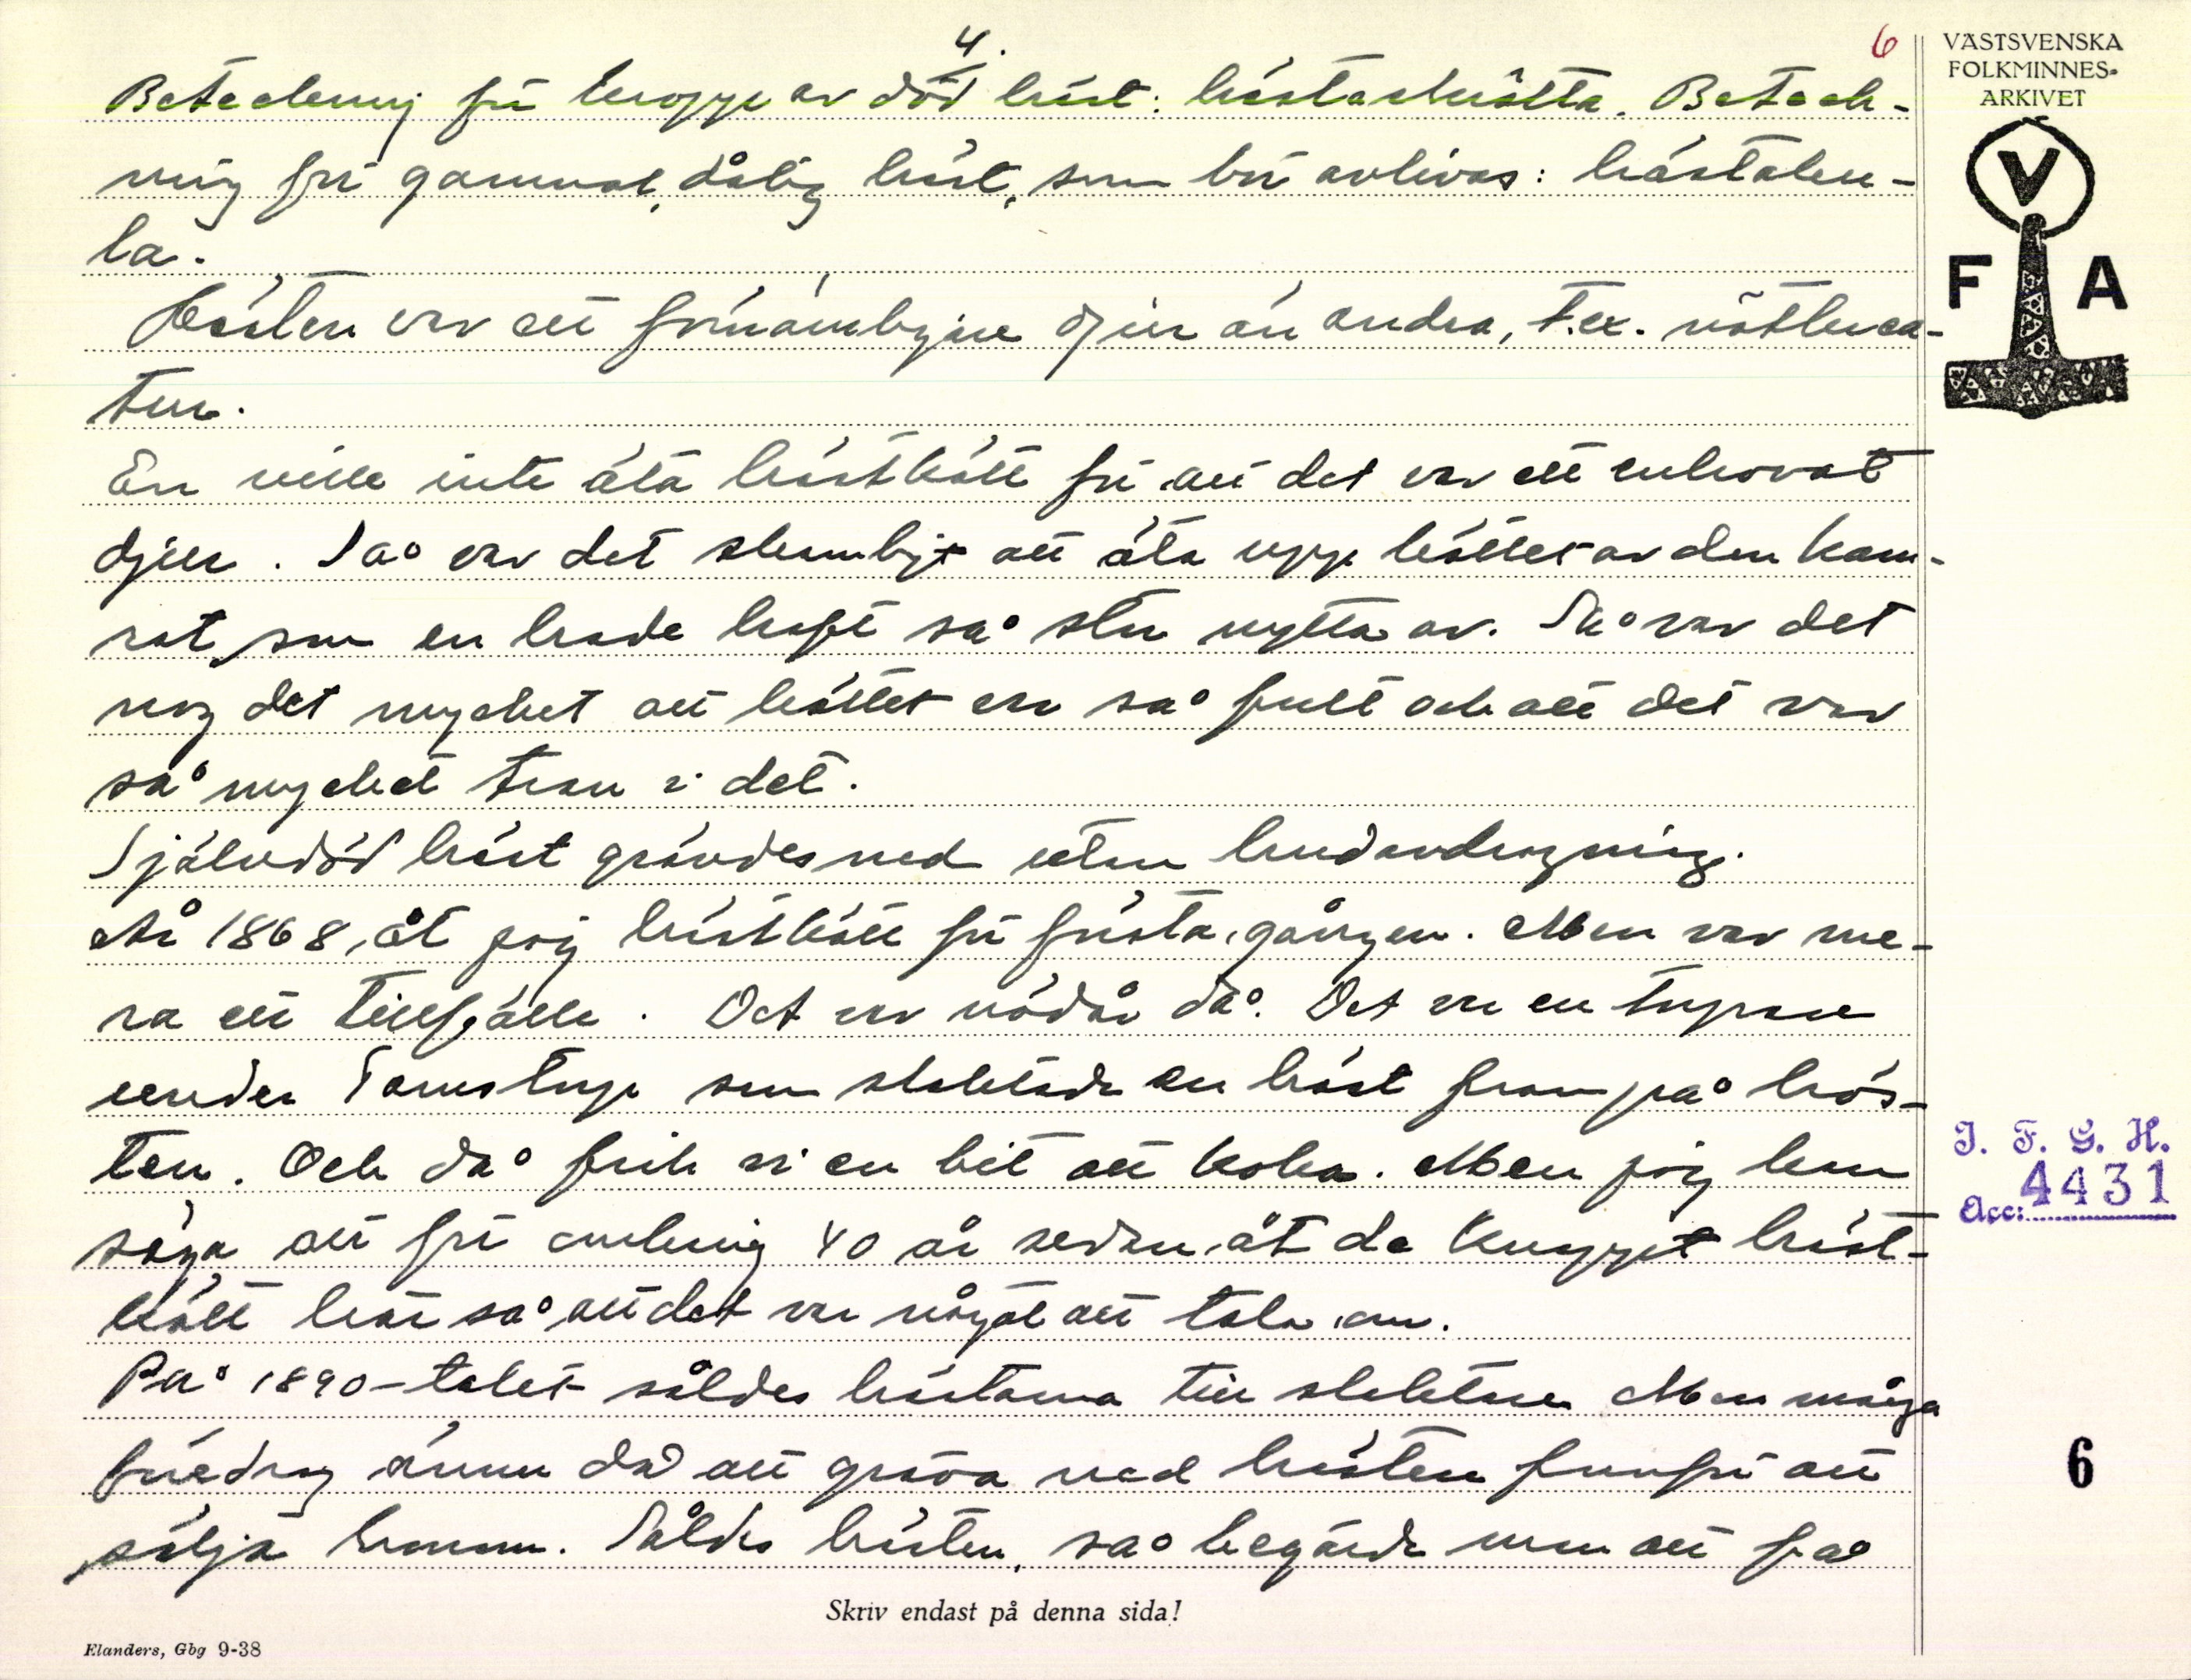 4.
6
VÄSTSVENSKA
FOLKMINNES-
ARKIVET
V
F A
Beteckning för kropp av död häst: hästaskrötta. Beteck-
ning för gammal, dålig häst, som bör avlivas:
la.
Hästen var ett förnämligare djur än andra, t.ex. nötkrea-
tur.
En ville inte äta hästkött för att det var ett enhovat
djur. Så var det skamligt att äta upp köttet av den kam-
rat, som en hade haft så stor nytta av. Så var det
nog det mycket att köttet var så fult och att det var
så mycket tran i det.
Självdöd häst grävdes ned utan hudavdragning.
År 1868, åt jag hästkött för första gången. Men var me-
ra ett tillfälle. Det var nödår då. Det var en torpare
under som slaktade en häst fram på hös-
ten. Och då fick vi en bit att koka. Men jag kan
säga att för omkring 40 år sedan, åt de knappt häst-
kött här så att det var något att tala om.
På 1890-talet såldes hästarna till slaktare. Men många
föredrog ännu då att gräva ned hästen framför att
sälja honom. Såldes hästen, så begärde man att få
I. F. G. H.
Acc: 4431
6
Skriv endast på denna sida!
Elanders, Gbg 9-38